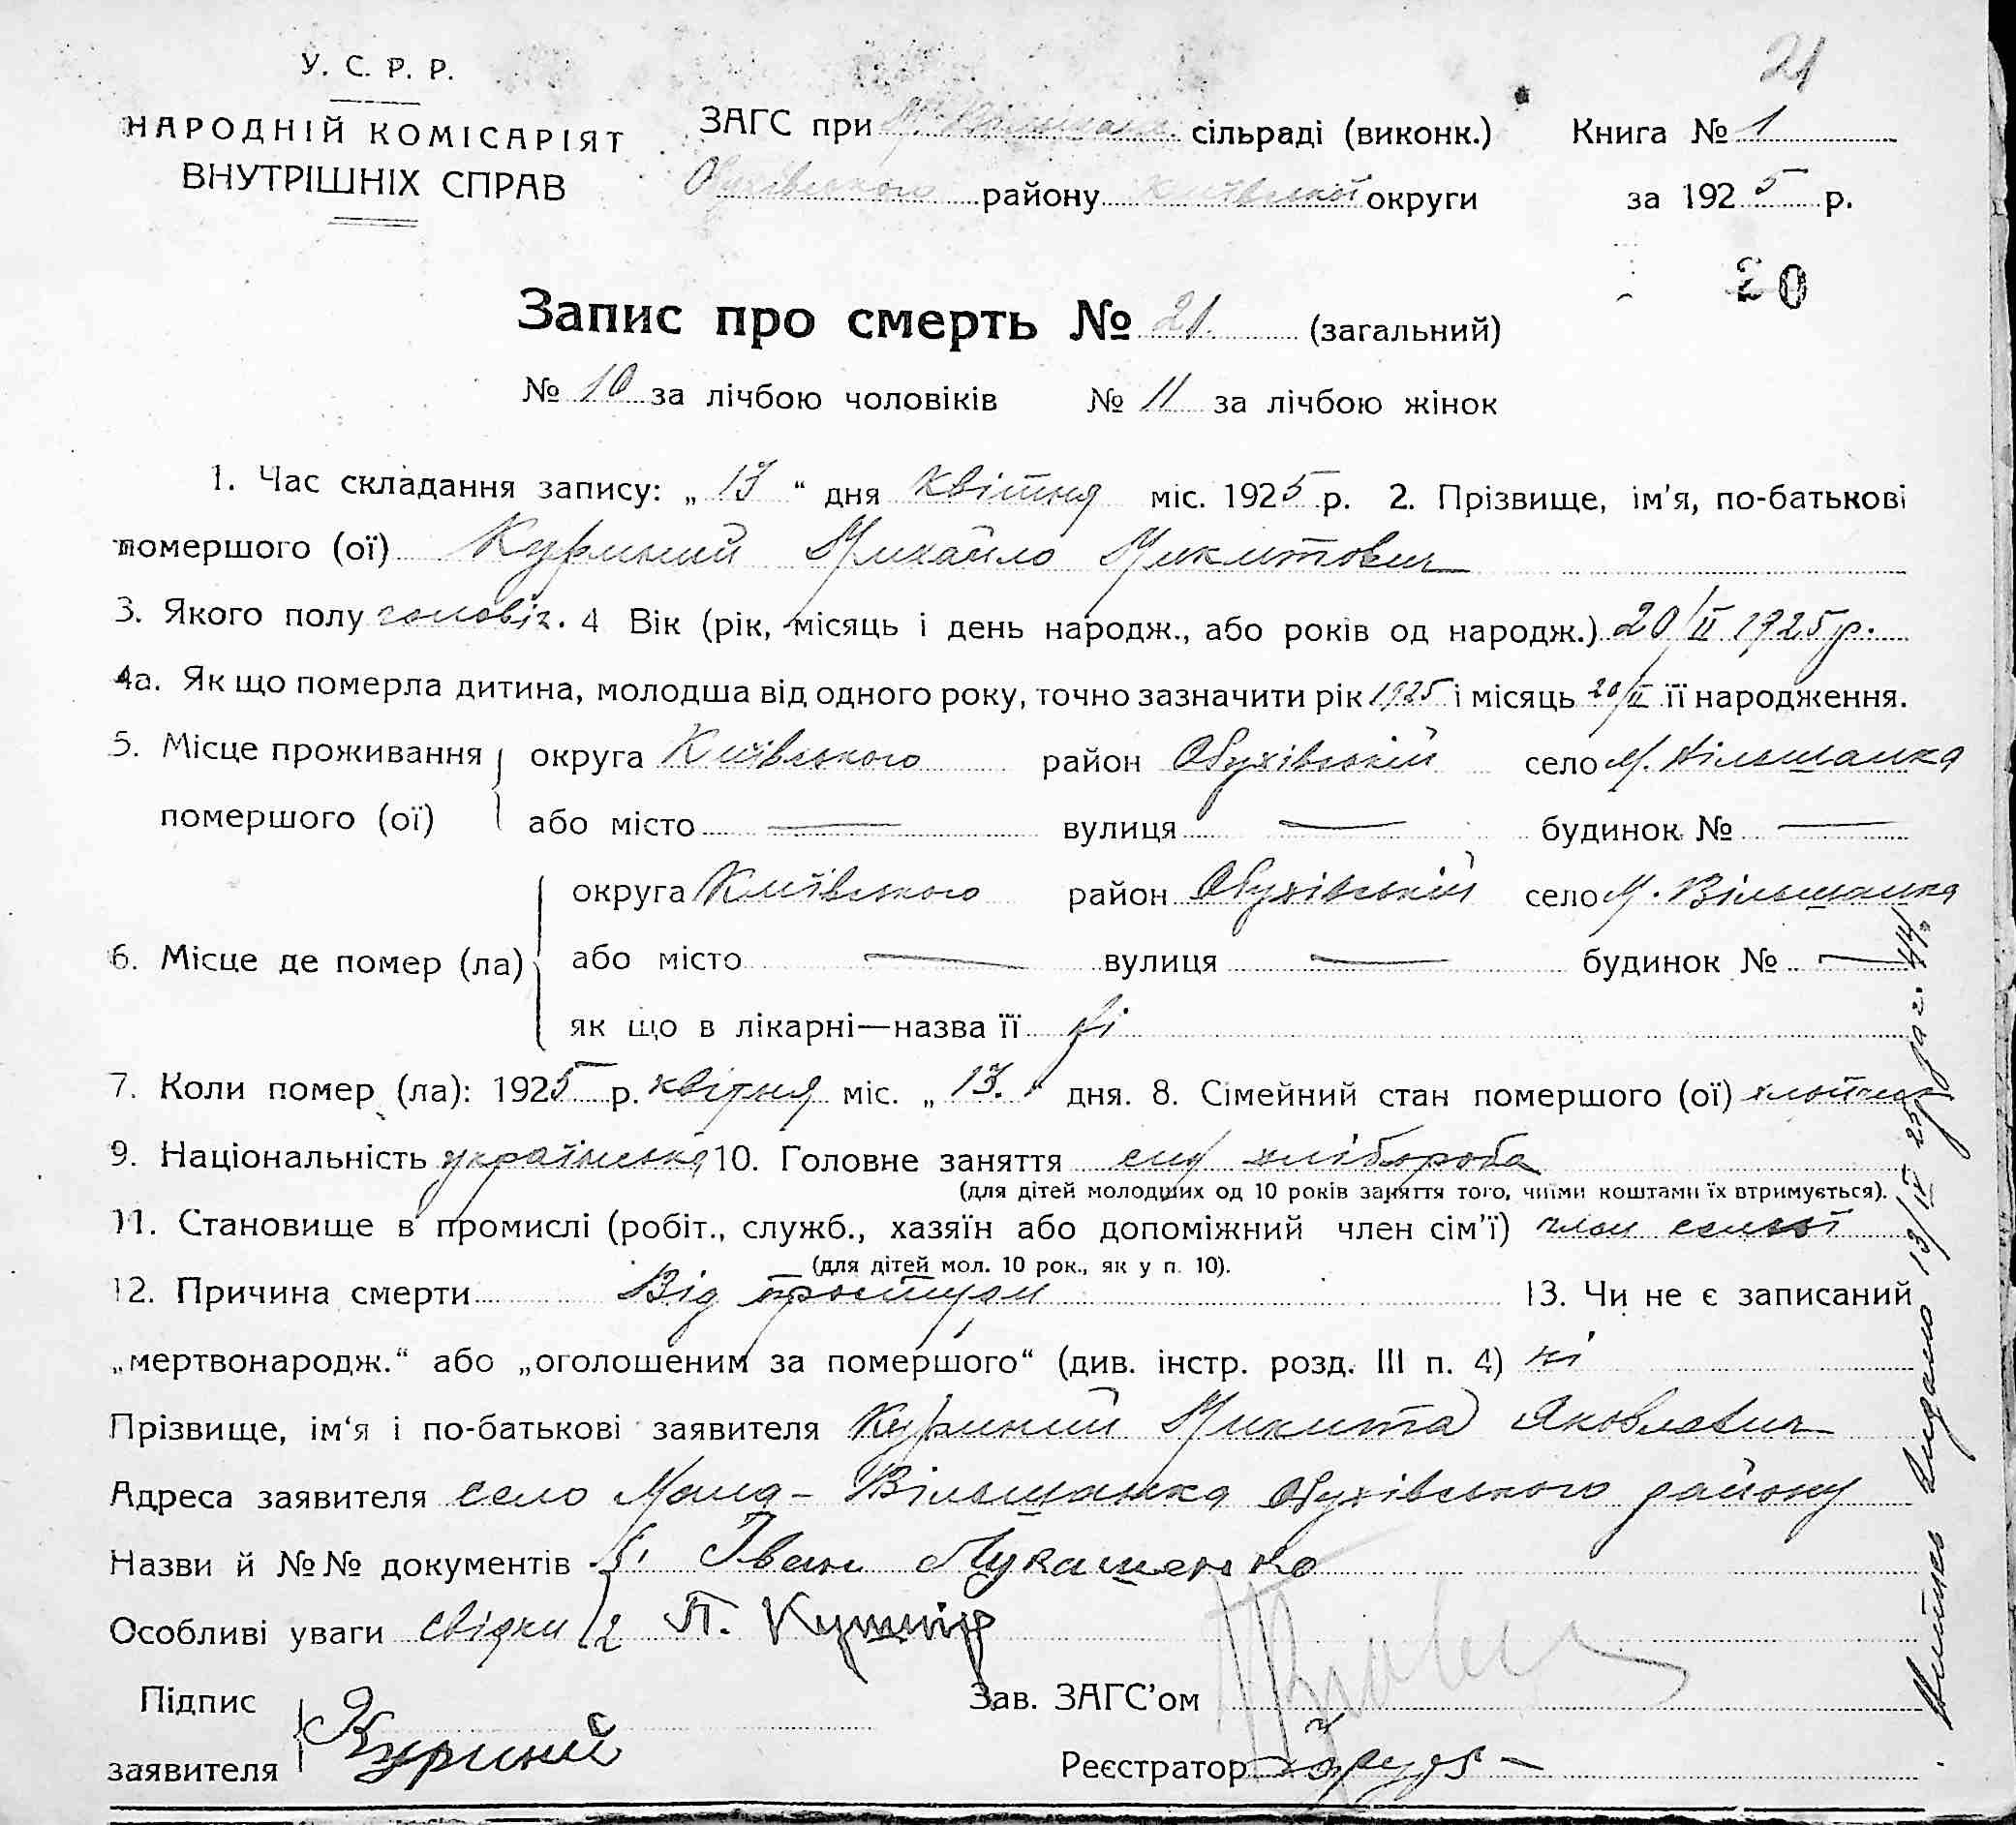 21
У. С. Р. Р.
НАРОДНІЙ КОМІСАРІЯТ
ВНУТРІШНІХ СПРАВ
ЗАГС при М. Вільшанск. сільраді (виконк.) Книга № 1
Обухівського району Київської округи за 1925 р.
20
Запис про смерть № 21. (загальний)
№ 10 за лічбою чоловіків № 11 за лічбою жінок
1. Час складання запису: „ 13 “ дня Квітня міс. 1925 р. 2. Прізвище, ім'я, по-батькові
помершого (ої) Куриний Михайло Микитович
3. Якого полу чоловіч. 4 Вік (рік, місяць і день народж., або років од народж.) 20/II 1925р.
4а. Як що померла дитина, молодша від одного року, точно зазначити рік 1925 і місяць 20/II її народження.
5. Місце проживання помершого (ої) округа Київського район Обухівській село М. Вільшанка
або місто — вулиця — будинок № —
6. Місце де помер (ла) округа Київського район Обухівській село М. Вільшанка
або місто — вулиця — будинок № —
як що в лікарні—назва її ні
7. Коли помер (ла): 1925 р. квітня міс. „ 13. “ дня. 8. Сімейний стан помершого (ої)
9. Національність українська 10. Головне заняття син хлібороба
(для дітей молодших од 10 років заняття того, чиїми коштами їх втримується).
11. Становище в промислі (робіт., служб., хазяїн або допоміжний член сім'ї) член семьї
(для дітей мол. 10 рок., як у п. 10).
12. Причина смерти Від простуди 13. Чи не є записаний
„мертвонародж.“ або „оголошеним за помершого“ (див. інстр. розд. III п. 4) ні
Прізвище, ім‘я і по-батькові заявителя Куриний Микита Яковлевич
Адреса заявителя село Мала-Вільшанка Обухівського району
Назви й №№ документів 1 Іван Лукашенко
Особливі уваги свідки 2 П. Кушнір
Підпис заявителя Куриний
Зав. ЗАГС'ом
Реєстратор
Витяг видано 13/IV 25 за г. 44.